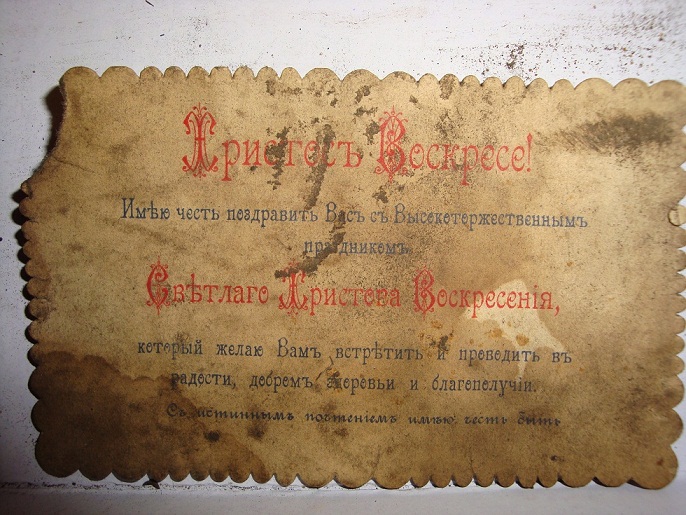 Христосъ Воскресе!
Имѣю честь поздравить Васъ съ Высокоторжественнымъ
праздникомъ
Свѣтлаго Христова Воскресенія,
который желаю Вамъ встрѣтить и проводить въ
радости, добромъ здоровьи и благополучіи.
Съ истиннымъ почтеніемъ имѣю честь быть